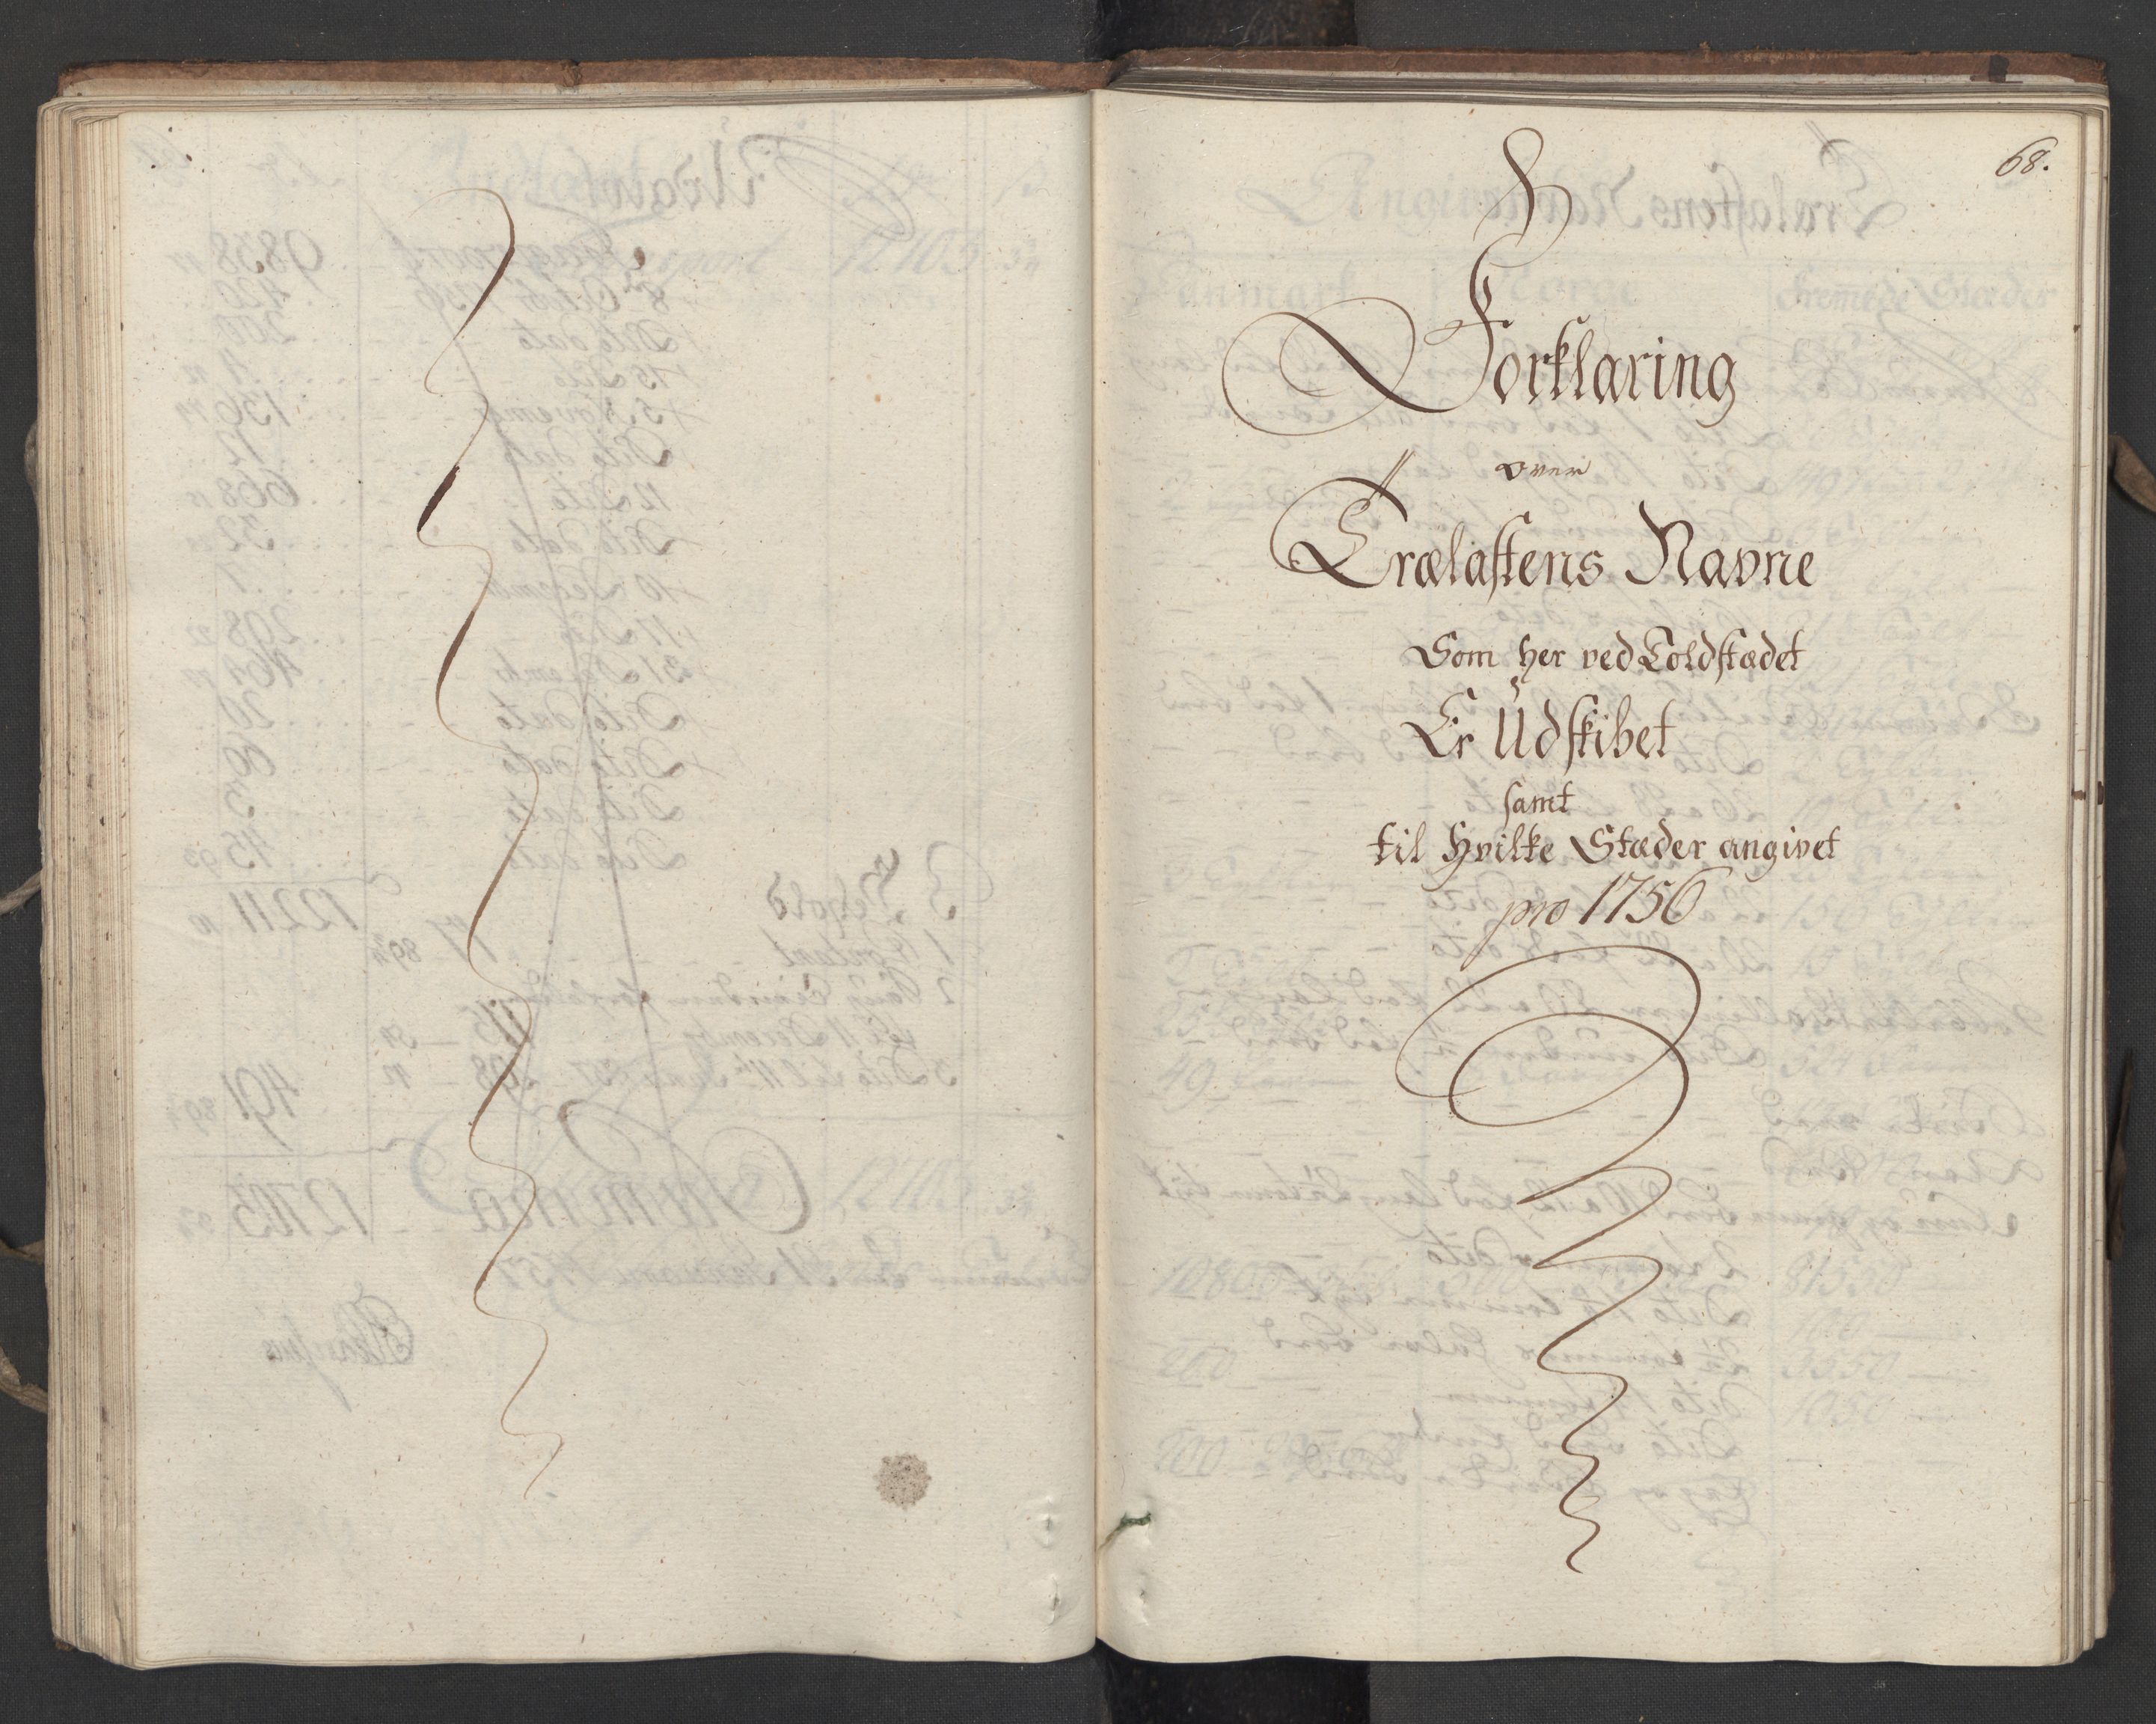 68.
Forklaring
over
Trælastens Navne
Som her ved Toldstædet
Er Udskibet
samt
til Hvilke Stæder angivet
pro 1756